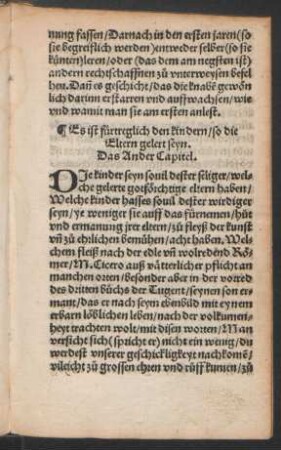 nung fassen/Darnach in den ersten jaren(so
sie begreiflich werden)entweder selber(so sie
künten)leren/oder (das dem am negsten ist)
andern rechtschaffnen zu vnterweysen befel
hen. Dañ es geschicht/das die knabē gewön
lich darinn erstarren vnd auffwachsen/wie
vnd wamit man sie am ersten anlest.
¶Es ist fürtreglich den kindern/so die
Eltern gelert seyn.
Das Ander Capitel.
DJe kinder seyn souil dester seliger/wel-
che gelerte gotsförchtige eltern haben/
Welche kinder hasses souil dester wirdiger
seyn/ye weniger sie auff das fürnemen/hüt
vnd ermanung jrer eltern/zu fleyß der kunst
vñ zu ehrlichen bemühen/acht haben. Wel-
chem fleiß nach der edle vñ wolredend Rö-
mer/M. Cicero auß vätterlicher pflicht an
manchen orten/besonder aber in der vorred
des dritten büchs der Tugent/seynen son er-
mant/das er nach seym ebenbild mit eynem
erbarn löblichen leben/nach der volkumen-
heyt trachten wolt/mit disen worten/Man
versicht sich(spricht er)nicht ein wenig/du
werdest vnserer geschickligkeyt nachkomē/
vileicht zu grossen ehren vnd rüff kumen/zu